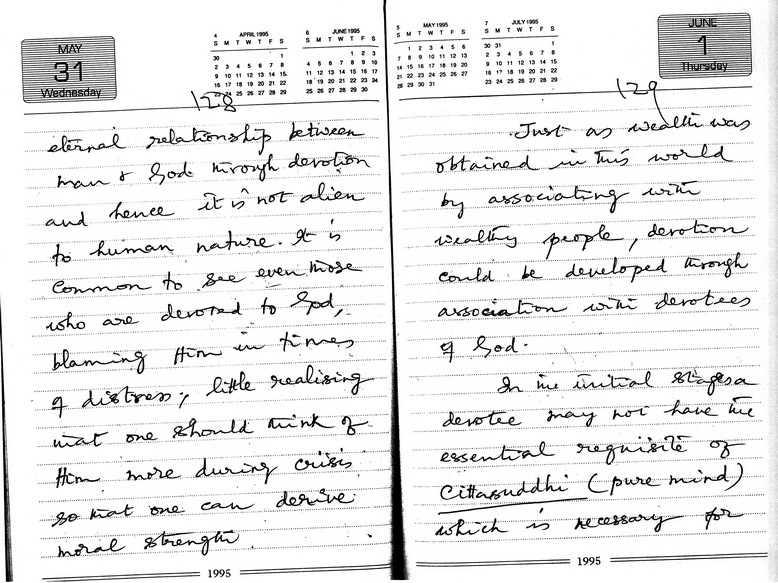 MAY
31
Wednesday
4 APRIL 1995
S M T W T F S
30 1
2 3 4 5 6 7 8
9 10 11 12 13 14 15
16 17 18 19 20 21 22
23 24 25 26 27 28 29
6 JUNE 1995
S M T W T F S
1 2 3
4 5 6 7 8 9 10
11 12 13 14 15 16 17
18 19 20 21 22 23 24
25 26 27 28 29 30
128
eternal relationship between
man & God through devotion
and hence it is not alien
to human nature. It is
common to see even those
who are devoted to God,
blaming Him in times
of distress, little realising
that one should think of
Him more during crisis
so that one can derive
moral strength.
1995
5 MAY 1995
S M T W T F S
1 2 3 4 5 6
7 8 9 10 11 12 13
14 15 16 17 18 19 20
21 22 23 24 25 26 27
28 29 30 31
7 JULY 1995
S M T W T F S
30 31 1
2 3 4 5 6 7 8
9 10 11 12 13 14 15
16 17 18 19 20 21 22
23 24 25 26 27 28 29
JUNE
1
Thursday
129
Just as wealth was
obtained in this world
by associating with
wealthy people, devotion
could be developed through
association with devotees
of God.
In the initial stages a
devotee may not have the
essential requisite of
Cittasuddhi (pure mind)
which is necessary for
1995